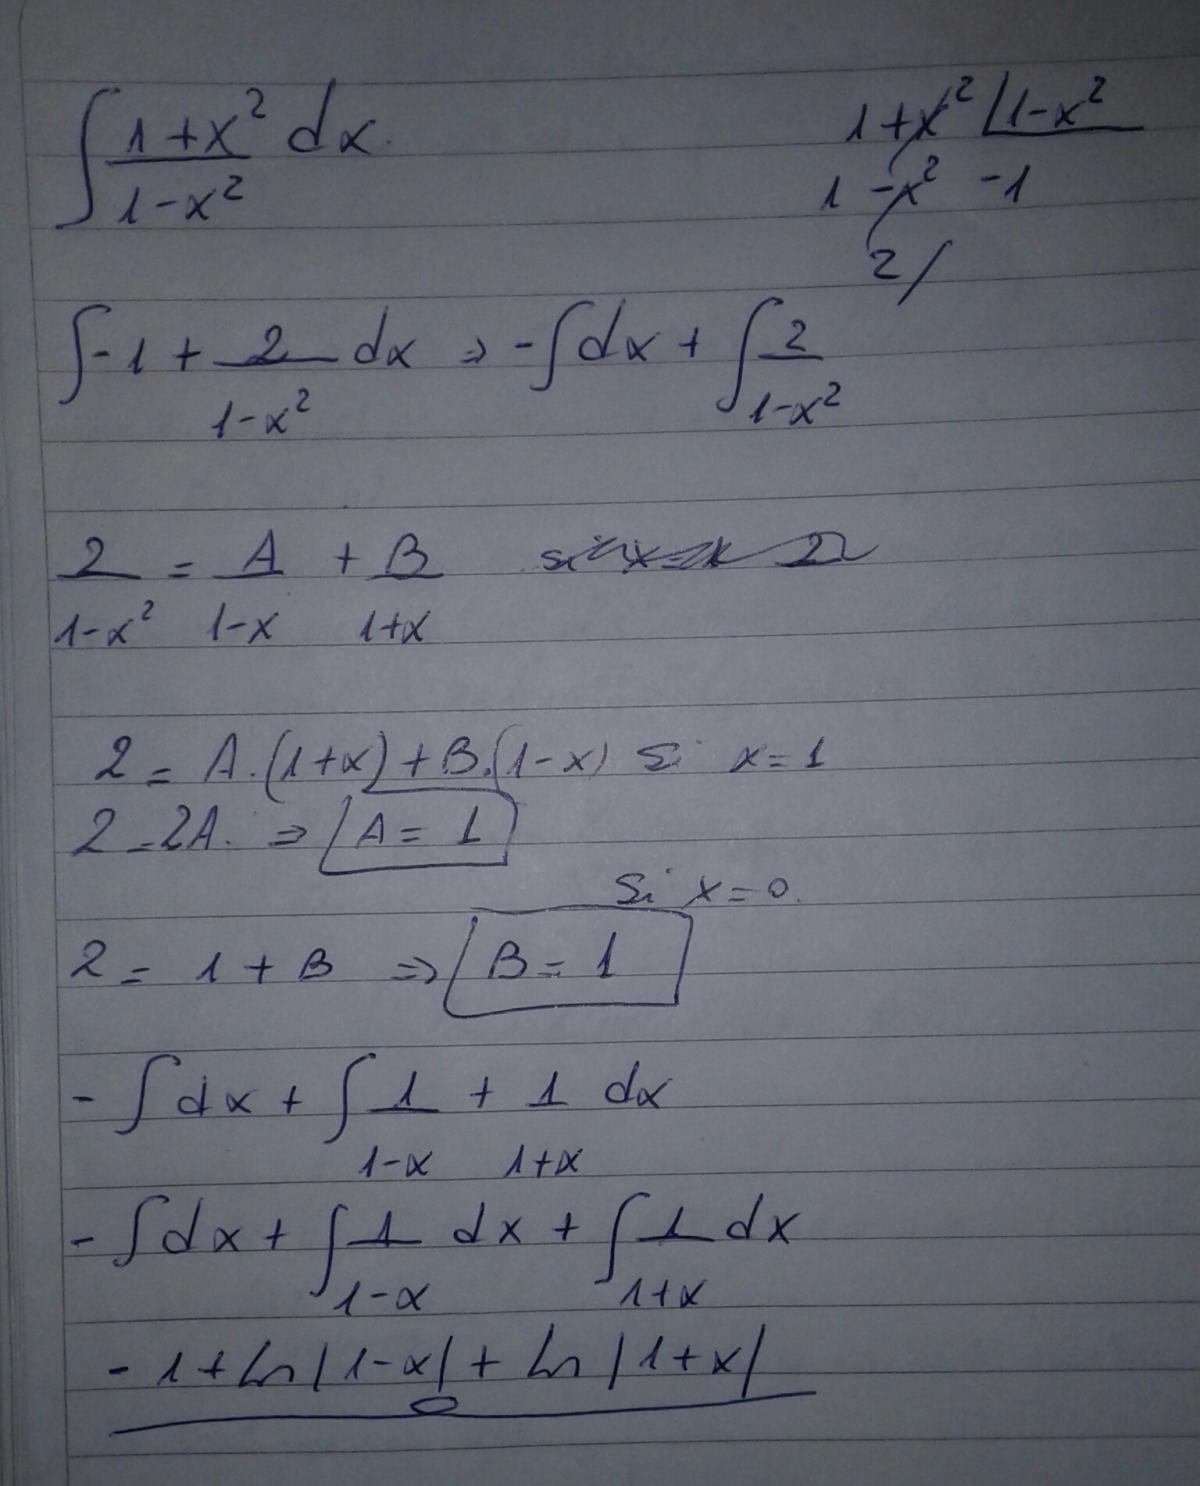 ∫ (1+x²)/(1-x²) dx.
1+x² | 1-x²
1-x² -1
2/
∫ -1 + 2/(1-x²) dx ⇒ -∫ dx + ∫ 2/(1-x²)
2/(1-x²) = A/(1-x) + B/(1+x)
2 = A.(1+x) + B.(1-x) Si x=1
2=2A. ⇒ A= 1
Si x=0.
2 = 1 + B ⇒ B= 1
- ∫ dx + ∫ 1/(1-x) + 1/(1+x) dx
- ∫ dx + ∫ 1/(1-x) dx + ∫ 1/(1+x) dx
- 1 + Ln |1-x| + Ln |1+x|